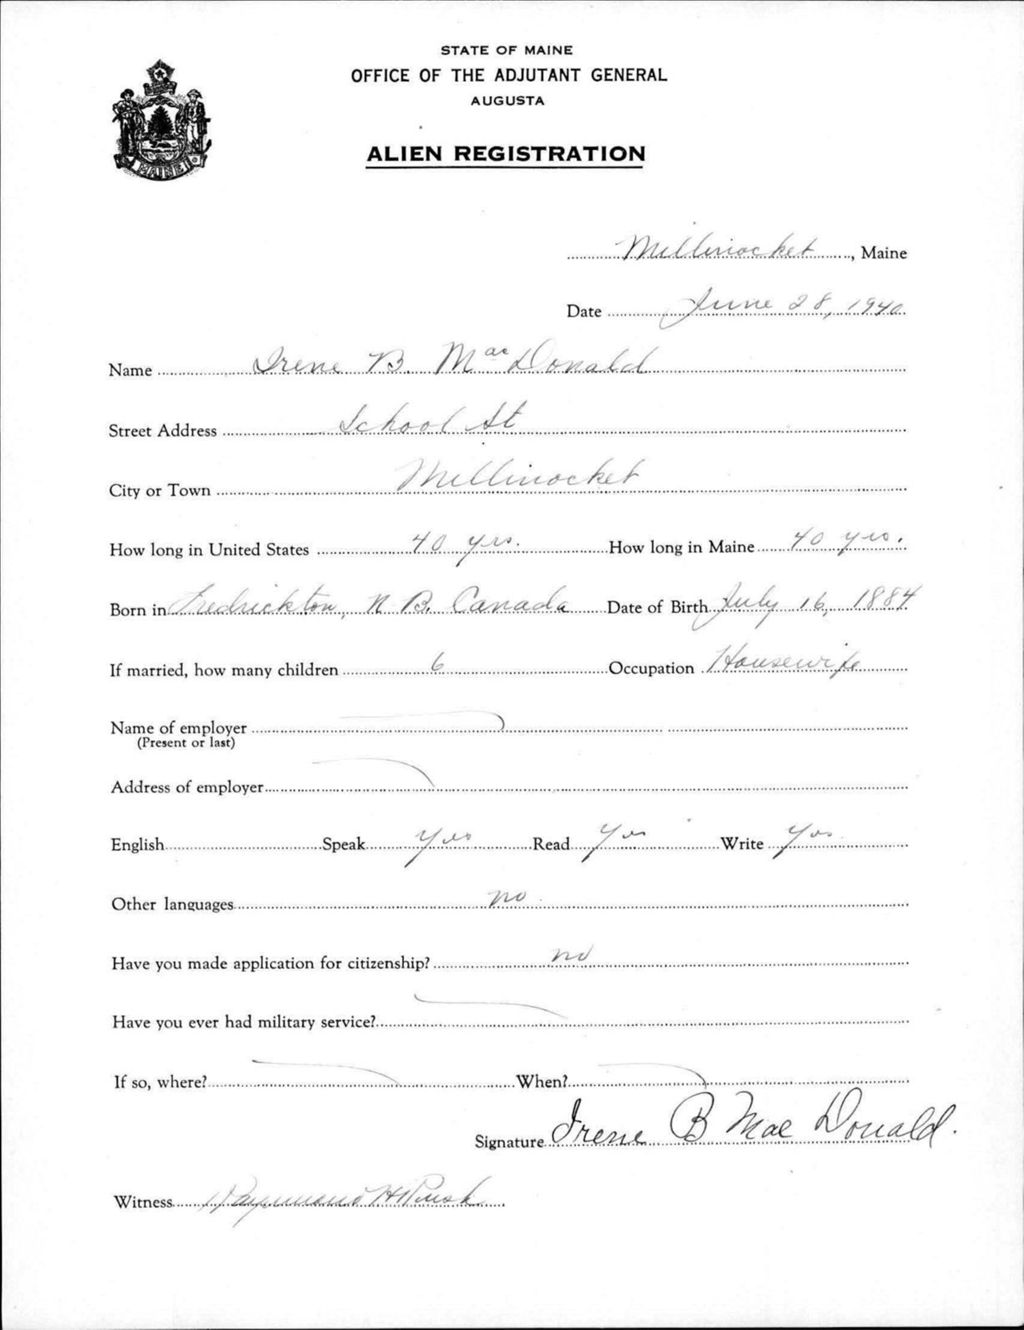 STATE OF MAINE
OFFICE OF THE ADJUTANT GENERAL
AUGUSTA
ALIEN REGISTRATION
MAINE
Millinocket, Maine
Date June 28, 1940
Name Irene B. MacDonald
Street Address School St
City or Town Millinocket
How long in United States 40 yrs. How long in Maine 40 yrs.
Born in Fredrickton, N. B. Canada Date of Birth July 16, 1884
If married, how many children 6 Occupation Housewife
Name of employer
(Present or last)
Address of employer
English Speak Yes Read Yes Write Yes
Other languages no
Have you made application for citizenship? no
Have you ever had military service?
If so, where? When?
Signature Irene B Mac Donald.
Witness Raymond H